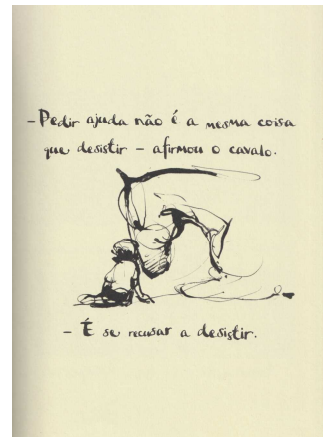 – Pedir ajuda não é a mesma coisa
que desistir – afirmou o cavalo.
– É se recusar a desistir.